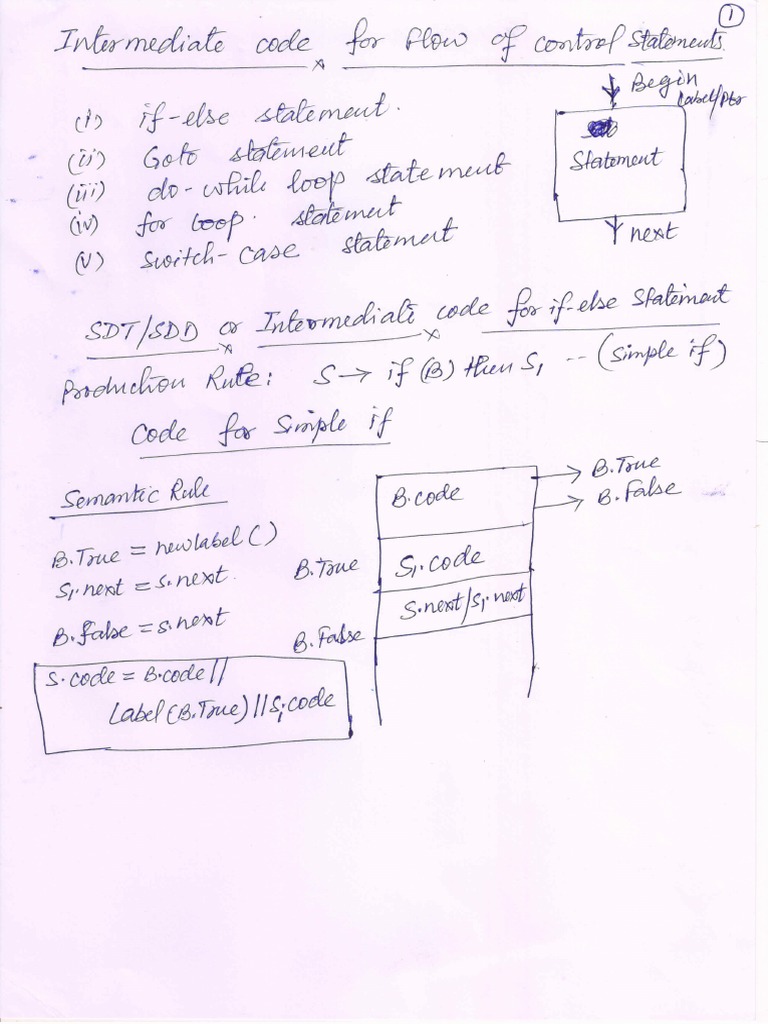 1
Intermediate code for flow of control statements.
(i) if-else statement.
(ii) Goto statement
(iii) do-while loop statement
(iv) for loop. statement
(v) switch-case statement
Begin
Label/Ptr
Statement
next
SDT/SDD or Intermediate code for if-else Statement
Production Rule: S → if (B) then S1 -- (Simple if)
Code for Simple if
Semantic Rule
B.True = newlabel()
S1.next = S.next.
B.false = S.next
S.code = B.code //
Label(B.True) // S1.code
B.code
B.True
B.False
B.True
S1.code
S.next/S1.next
B.False